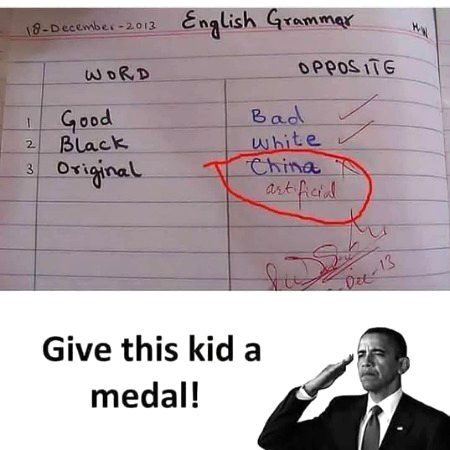 18-December-2013 English Grammar H.W
WORD OPPOSITE
1 Good Bad
2 Black White
3 Original China
artificial
Dec 13
Give this kid a
medal!